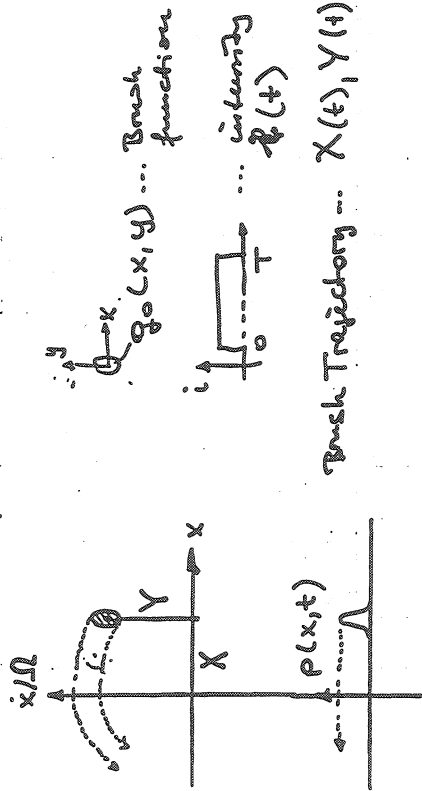 ẋ/Ω
Y
X
x
ρ(x,t)
y
x
g₀(x,y) ... Brush
function
i
0
T
... intensity
(t)
Brush Trajectory ... X(t), Y(t)